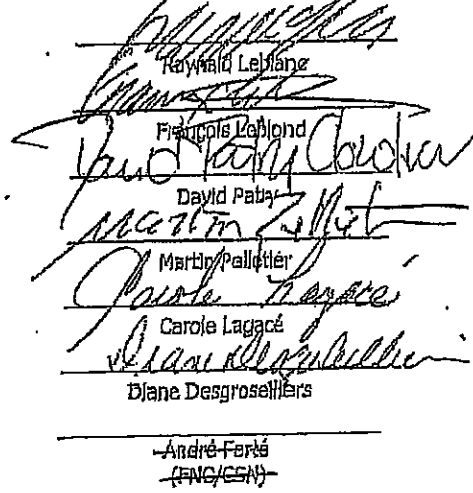 Raynald Leblanc
François Leblond
David Patry Cloutier
David Patry
Martin Pelletier
Carole Lagacé
Carole Lagacé
Diane Desgroseilliers
Diane Desgroseilliers
André Forté
(FNC/CSN)